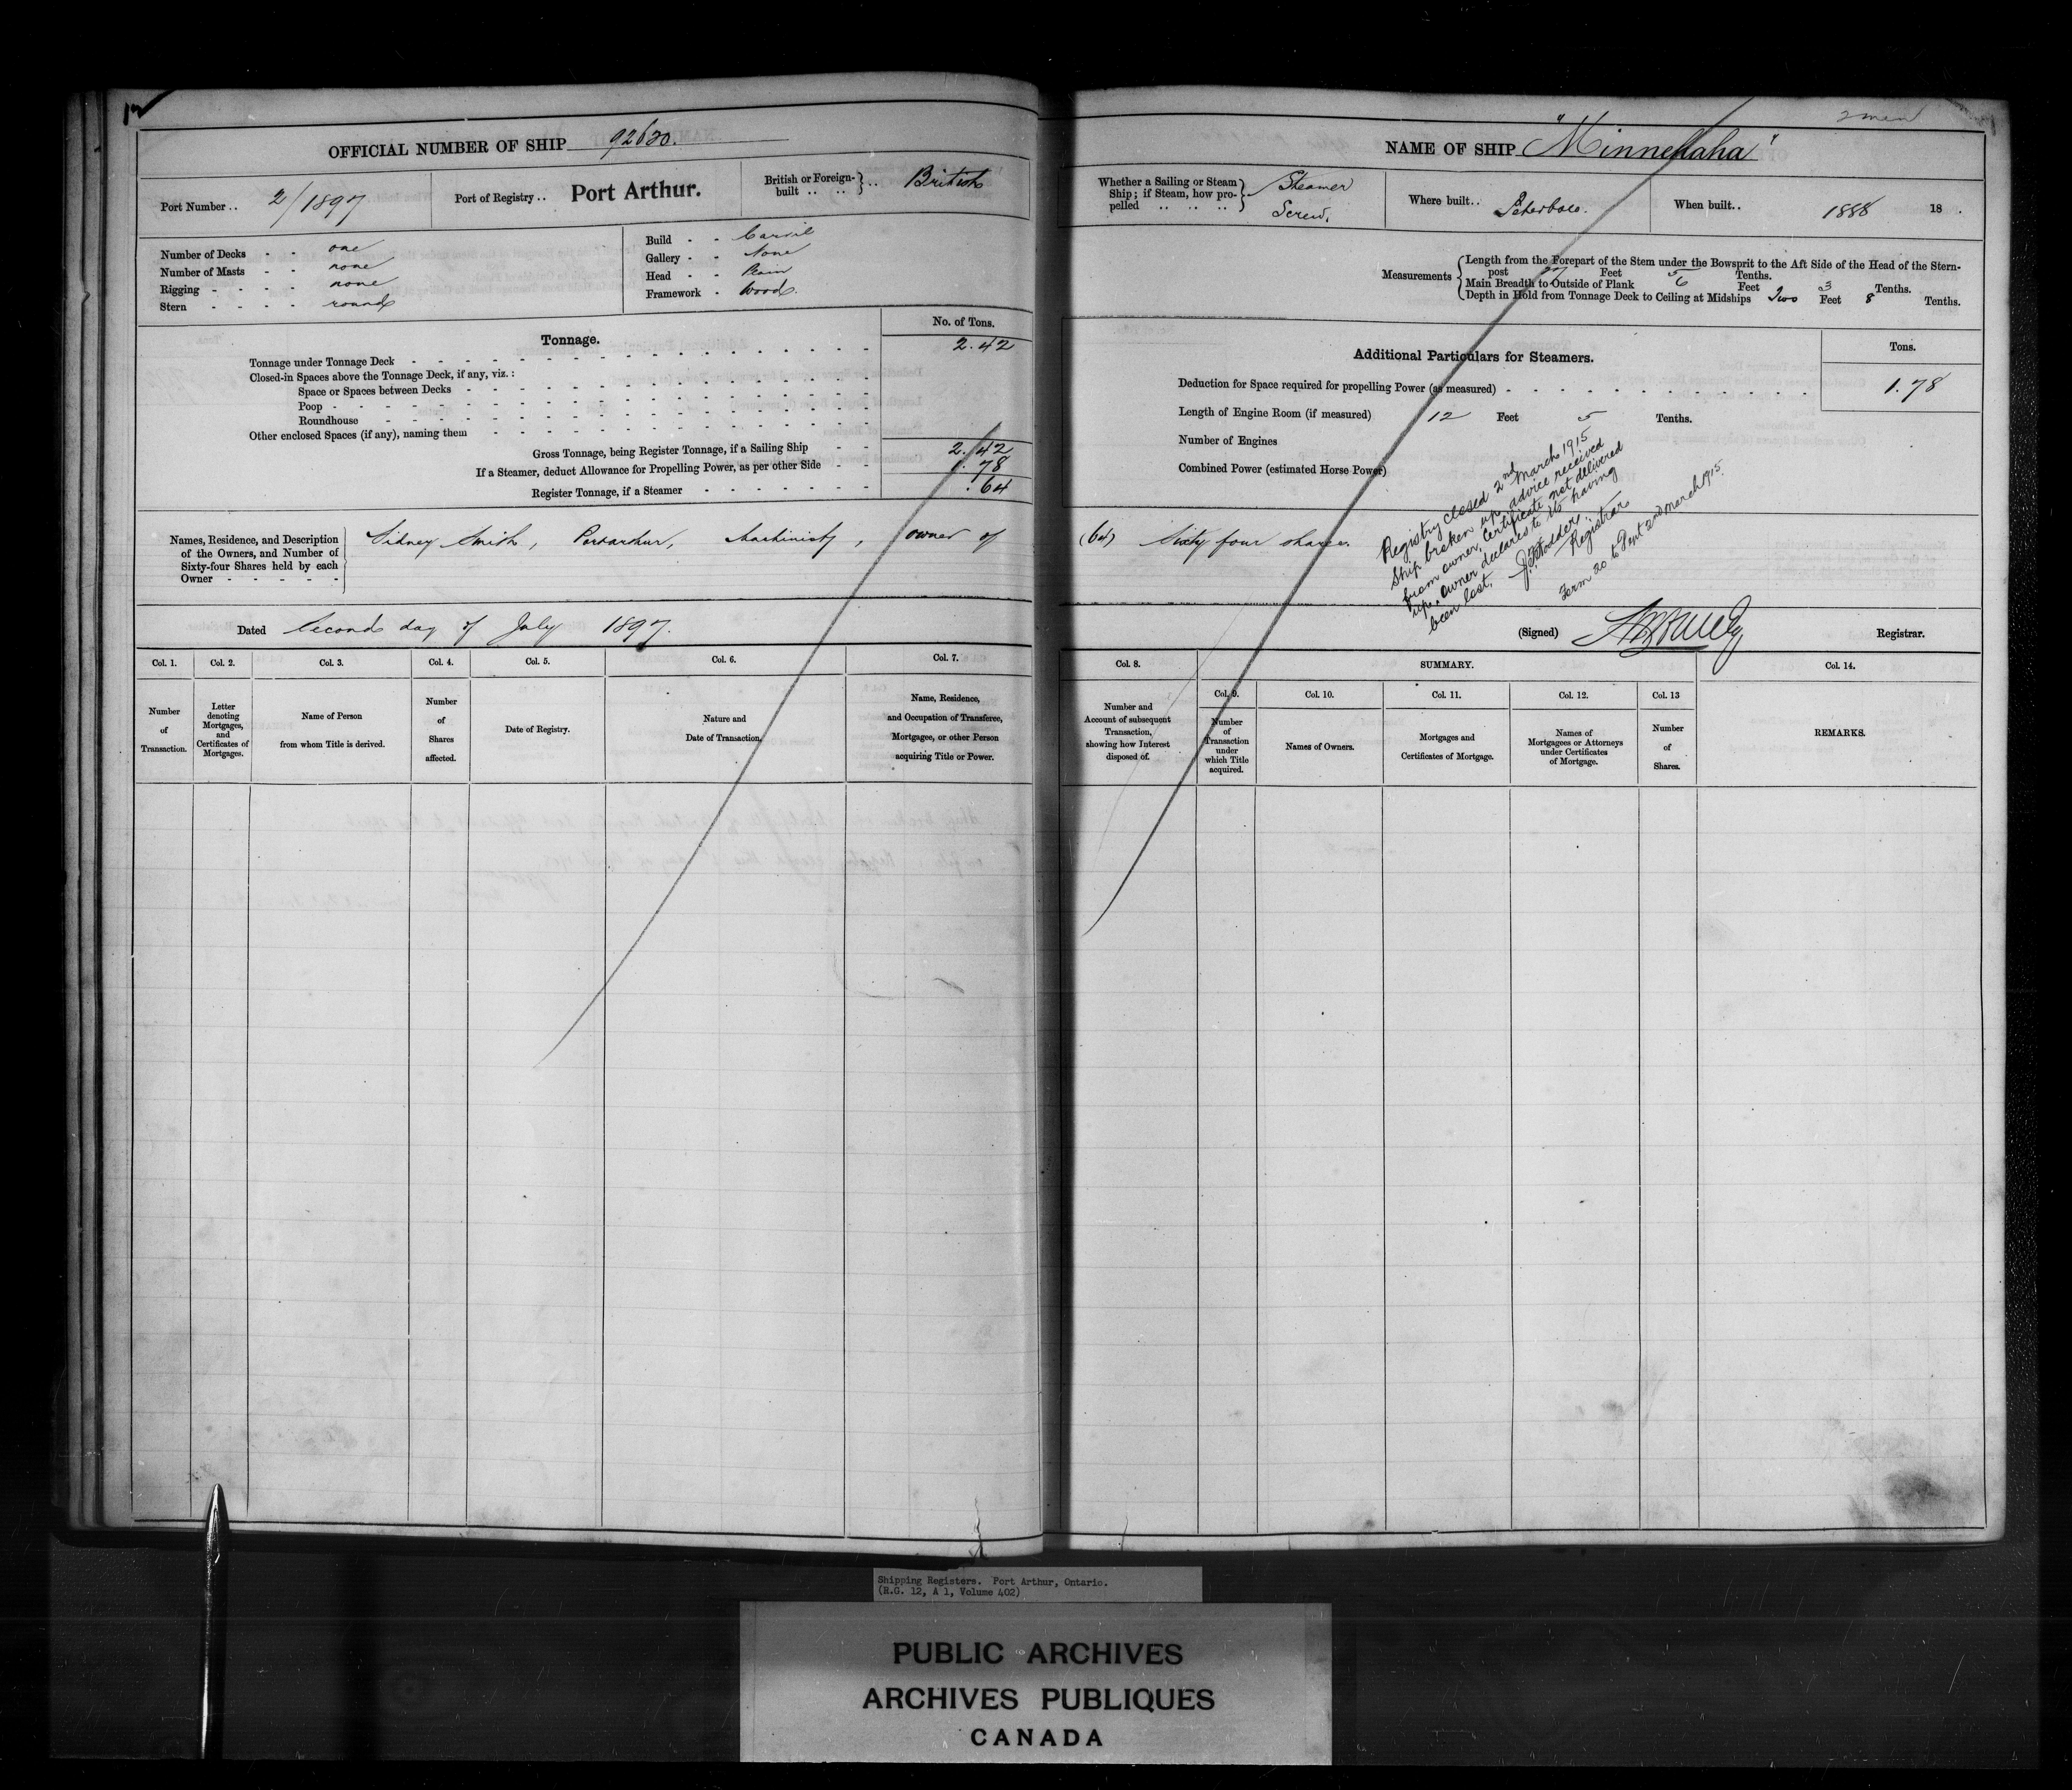 12
OFFICIAL NUMBER OF SHIP 92620.
Port Number .. 2/1897
Port of Registry .. Port Arthur.
British or Foreign-built .. .. } .. British
Number of Decks - - one
Number of Masts - - none
Rigging - - - - none
Stern - - - - round
Build - - Carvil
Gallery - - None
Head - - Plain
Framework - Wood.
Tonnage.
No. of Tons.
Tonnage under Tonnage Deck 2.42
Closed-in Spaces above the Tonnage Deck, if any, viz. :
Space or Spaces between Decks
Poop
Roundhouse
Other enclosed Spaces (if any), naming them
Gross Tonnage, being Register Tonnage, if a Sailing Ship 2.42
If a Steamer, deduct Allowance for Propelling Power, as per other Side 1.78
Register Tonnage, if a Steamer .64
Names, Residence, and Description
of the Owners, and Number of
Sixty-four Shares held by each
Owner - - - - -
Sidney Smith, Portarthur, Machinist, owner of
Dated Second day of July 1897.
Col. 1.
Number
of
Transaction.
Col. 2.
Letter
denoting
Mortgages,
and
Certificates of
Mortgages.
Col. 3.
Name of Person
from whom Title is derived.
Col. 4.
Number
of
Shares
affected.
Col. 5.
Date of Registry.
Col. 6.
Nature and
Date of Transaction.
Col. 7.
Name, Residence,
and Occupation of Transferee,
Mortgagee, or other Person
acquiring Title or Power.
NAME OF SHIP "Minnehaha"
Whether a Sailing or Steam
Ship; if Steam, how pro-
pelled .. .. ..
Steamer
Screw.
Where built.. Peterboro.
When built.. 1888 18 .
Measurements
Length from the Forepart of the Stem under the Bowsprit to the Aft Side of the Head of the Stern-
post 27 Feet 5 Tenths.
Main Breadth to Outside of Plank 6 Feet 3 Tenths.
Depth in Hold from Tonnage Deck to Ceiling at Midships Two Feet 8 Tenths.
Additional Particulars for Steamers.
Tons.
Deduction for Space required for propelling Power (as measured) 1.78
Length of Engine Room (if measured) 12 Feet 5 Tenths.
Number of Engines
Combined Power (estimated Horse Power)
(64) Sixty four shares.
Registry closed 2nd March 1915
Ship broken up, advice received
from owner, Certificate not delivered
up, owner declares to its having
been lost.
Registrar
Form 20 to Dept 2nd March 1915.
(Signed)
Registrar.
Col. 8.
Number and
Account of subsequent
Transaction,
showing how Interest
disposed of.
SUMMARY.
Col. 9.
Number
of
Transaction
under
which Title
acquired.
Col. 10.
Names of Owners.
Col. 11.
Mortgages and
Certificates of Mortgage.
Col. 12.
Names of
Mortgagees or Attorneys
under Certificates
of Mortgage.
Col. 13
Number
of
Shares.
Col. 14.
REMARKS.
Shipping Registers. Port Arthur, Ontario.
(R.G. 12, A 1, Volume 402)
PUBLIC ARCHIVES
ARCHIVES PUBLIQUES
CANADA